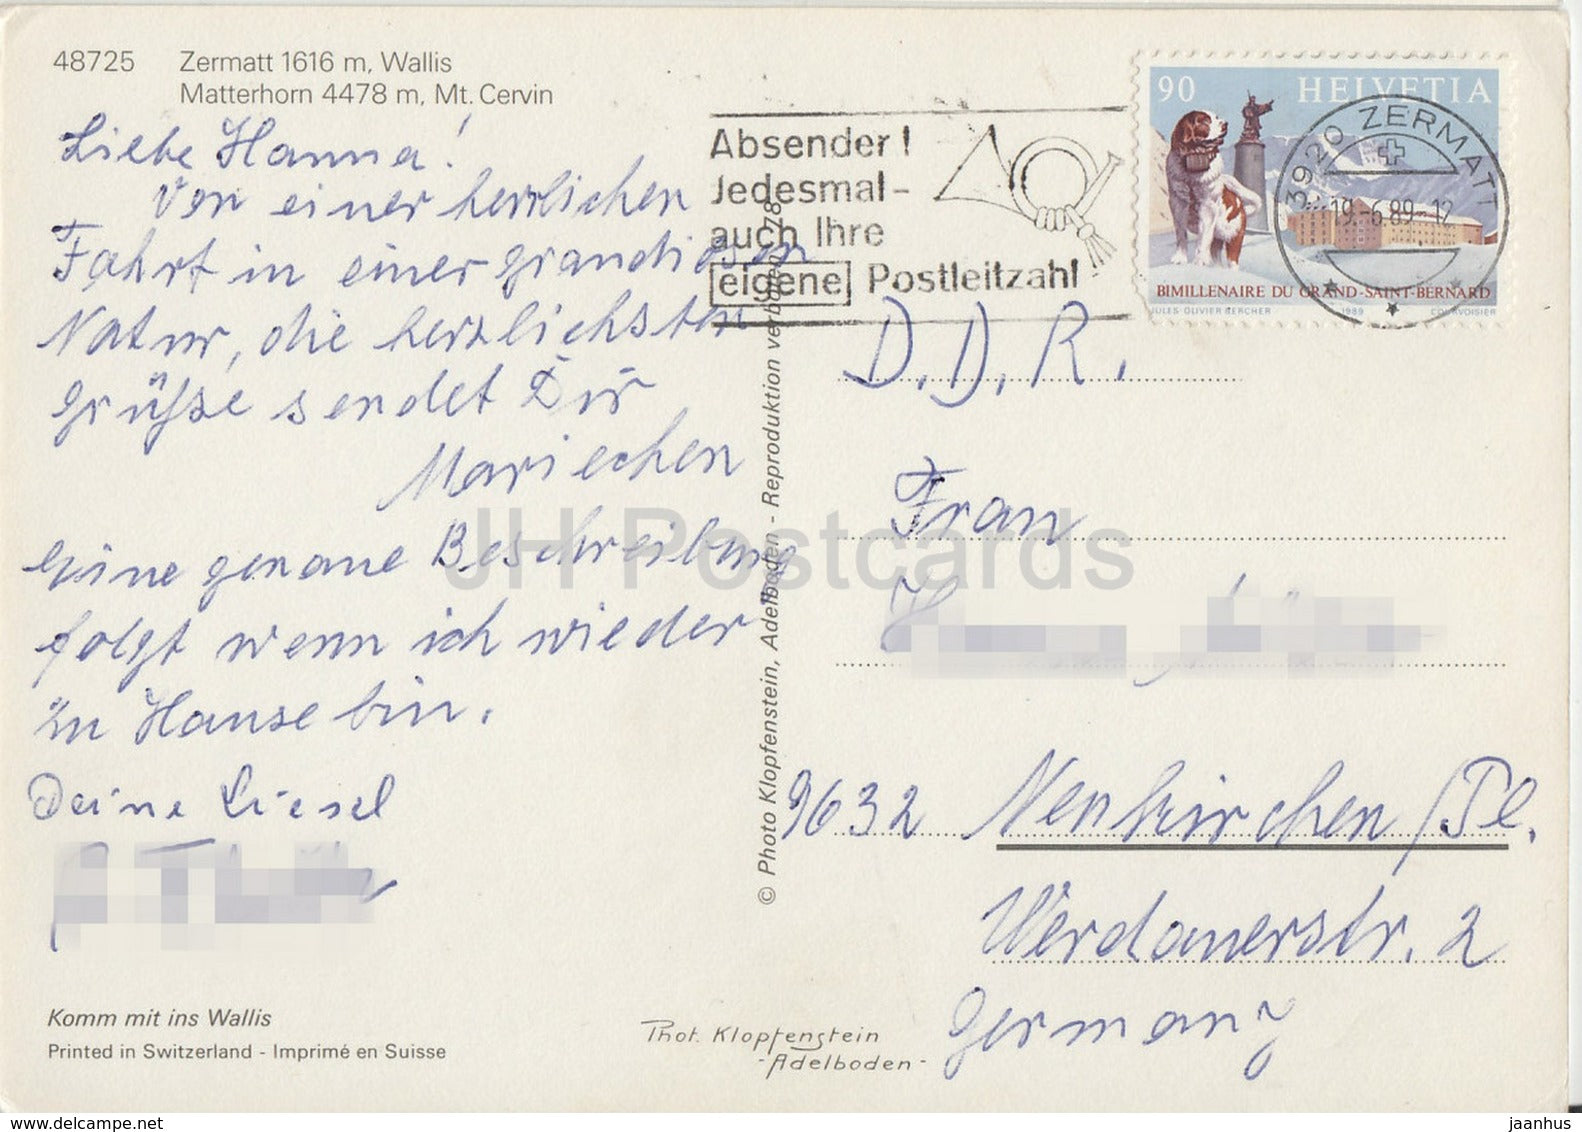 48725 Zermatt 1616 m, Wallis
Matterhorn 4478 m, Mt. Cervin
Liebe Hanna!
Von einer herrlichen
Fahrt in einer grandiosen
Natur, die herzlichsten
Grüße sendet Dir
Mariechen
Eine genaue Beschreibung
folgt wenn ich wieder
zu Hause bin.
Deine Liesel
Komm mit ins Wallis
Printed in Switzerland - Imprimé en Suisse
Phot. Klopfenstein
- Adelboden -
© Photo Klopfenstein, Adelboden - Reproduktion verboten 78
Absender!
Jedesmal-
auch Ihre
eigene Postleitzahl
90 HELVETIA
BIMILLENAIRE DU GRAND-SAINT-BERNARD
JULES-OLIVIER BERCHER 1989 COURVOISIER
3920 ZERMATT
19.-6.89-12
D.D.R.
Frau
9632 Neukirchen/Pl.
Werdauerstr. 2
Germany
JH Postcards
www.delcampe.net
jaanhus